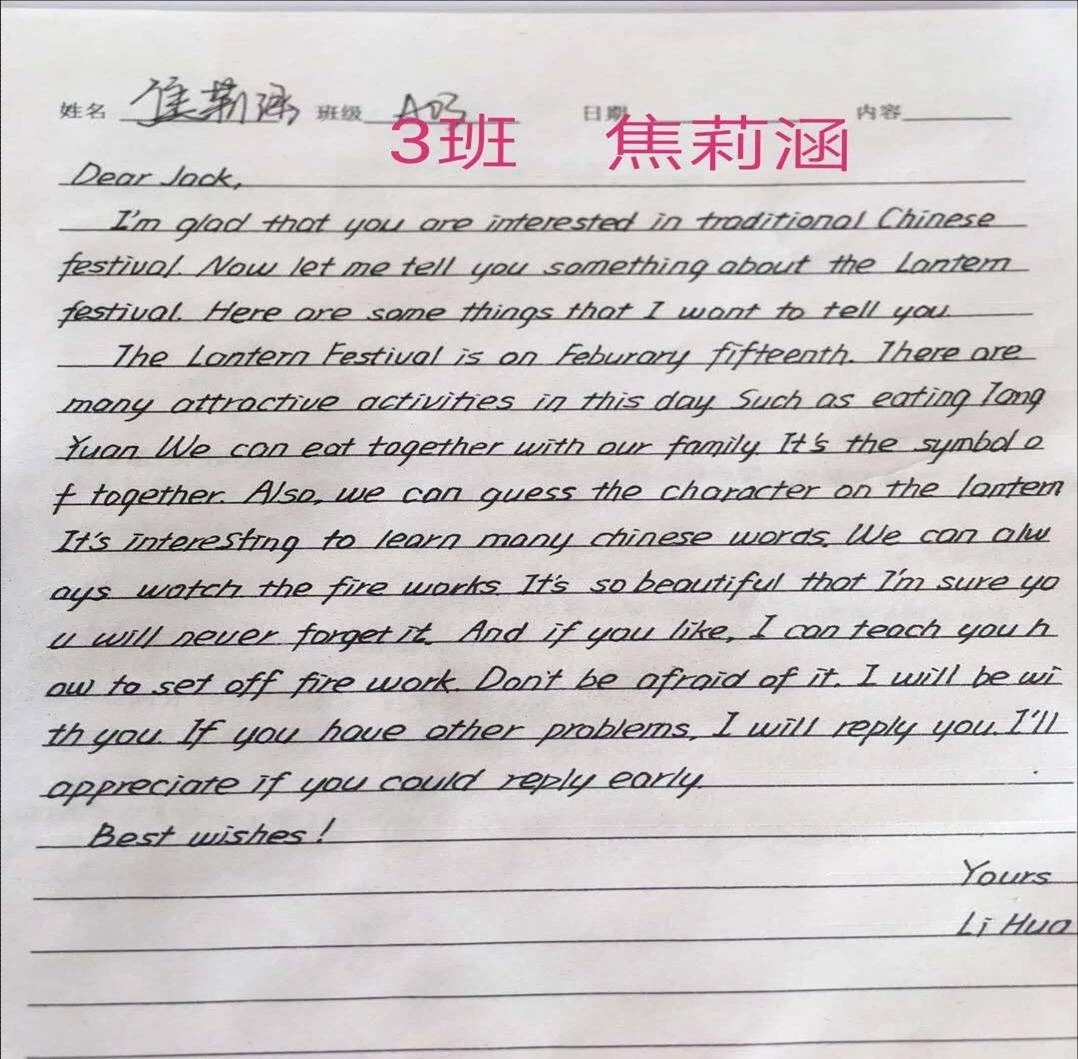 姓名 焦莉涵 班级 A03 日期 内容
3班 焦莉涵
Dear Jack,
I'm glad that you are interested in traditional Chinese
festival. Now let me tell you something about the Lantern
festival. Here are some things that I want to tell you
The Lantern Festival is on Feburary fifteenth. There are
many attractive activities in this day. Such as eating Tang
Yuan We can eat together with our family. It's the symbol o
f together. Also, we can guess the character on the lantern
It's interesting to learn many chinese words. We can alw
ays watch the fire works. It's so beautiful that I'm sure yo
u will never forget it. And if you like, I can teach you h
ow to set off fire work. Don't be afraid of it. I will be wi
th you. If you have other problems, I will reply you. I'll
appreciate if you could reply early.
Best wishes!
Yours
Li Hua